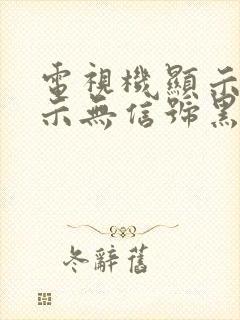 電視機顯示
示無信號黑
冬辭舊